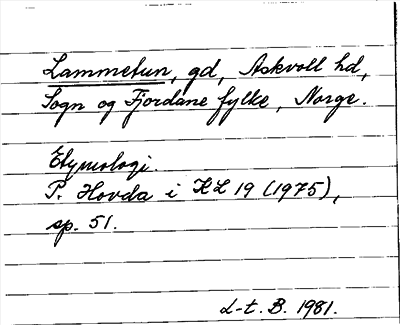 Lammetun, gd, Askvoll hd,
Sogn og Fjordane fylke, Norge.
Etymologi.
P. Hovda i KL 19 (1975),
sp. 51.
L-t. B. 1981.